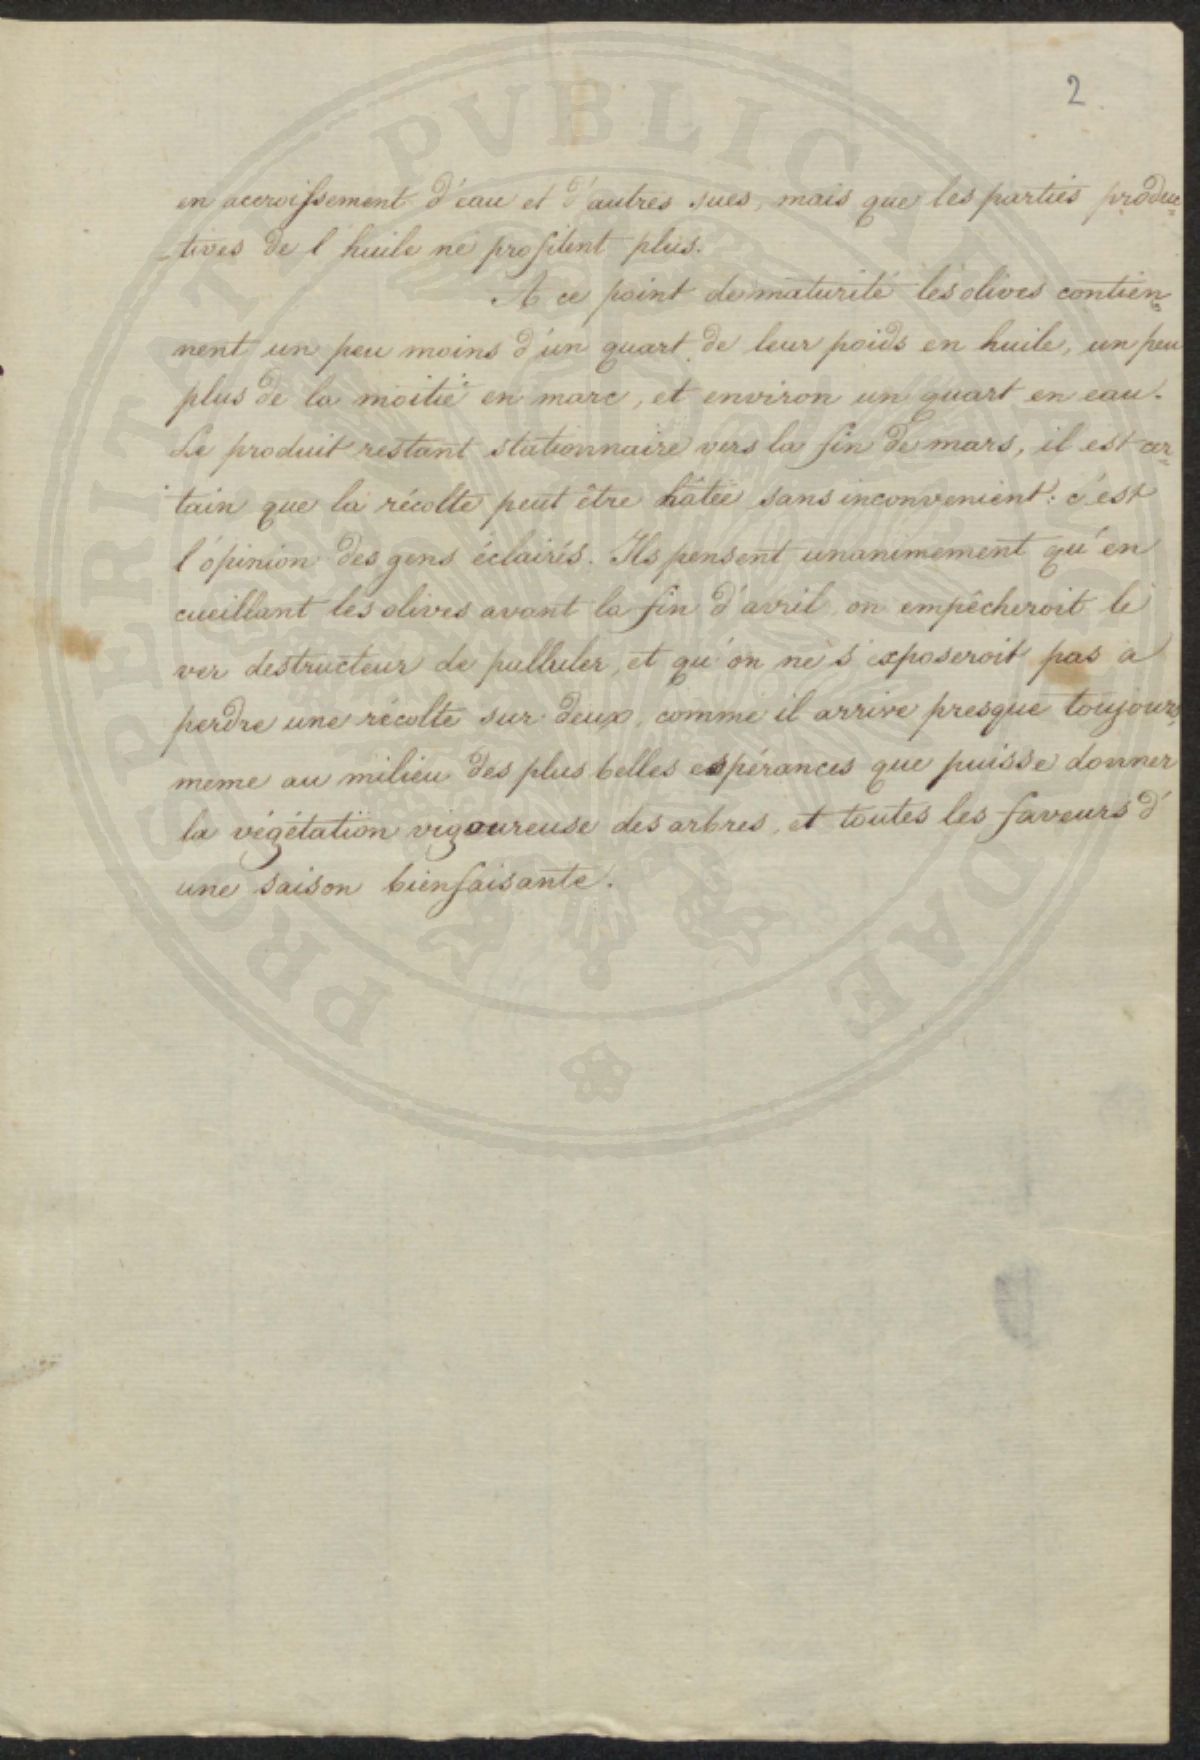 2
en accroissement d'eau et d'autres sucs, mais que les parties produc=
=tives de l'huile ne profitent plus.
A ce point de maturité les olives contien=
nent un peu moins d'un quart de leur poids en huile, un peu
plus de la moitié en marc, et environ un quart en eau.
Le produit restant stationnaire vers la fin de mars, il est cer=
tain que la récolte peut être hâtée sans inconvenient: c'est
l'opinion des gens éclairés. Ils pensent unanimement qu'en
cueillant les olives avant la fin d'avril, on empêcheroit le
ver destructeur de pulluler, et qu'on ne s'exposeroit pas a
perdre une récolte sur deux, comme il arrive presque toujours,
meme au milieu des plus belles espérances que puisse donner
la végétation vigoureuse des arbres, et toutes les faveurs d'
une saison bienfaisante.
PROSPERITATI PVBLICAE AVGENDAE